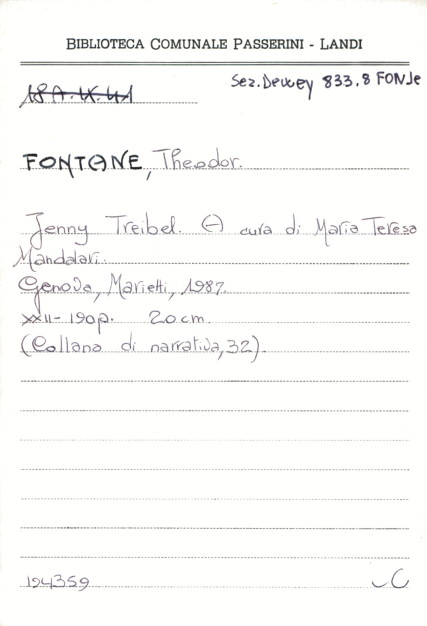 BIBLIOTECA COMUNALE PASSERINI - LANDI
Sez. Dewey 833.8 FONJe
18 A.IX.41
FONTANE, Theodor.
Jenny Treibel. A cura di Maria Teresa
Mandalari.
Genova, Marietti, 1987.
XXII-190p. 20 cm.
(Collana di narrativa, 32).
194359